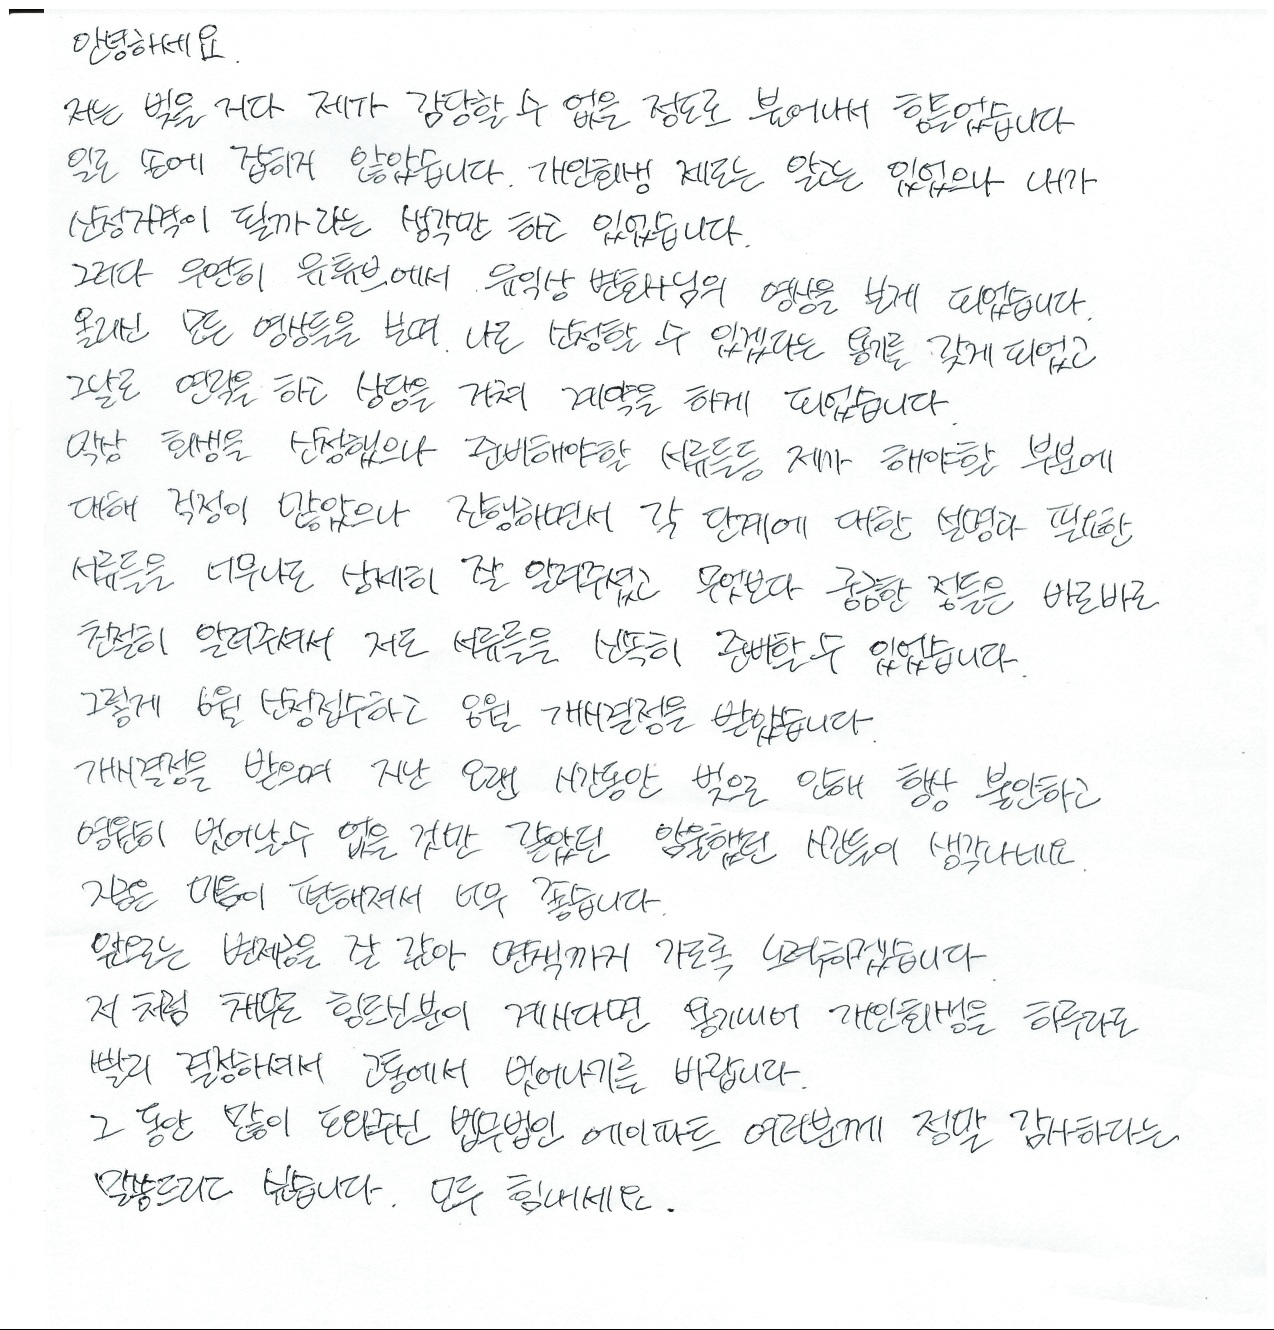 안녕하세요.
저는 빚을 지다 제가 감당할 수 없을 정도로 불어나서 힘들었습니다
일도 손에 잡히지 않았습니다. 개인회생 제도는 알고는 있었으나 내가
신청자격이 될까라는 생각만 하고 있었습니다.
그러다 우연히 유튜브에서 유익상 변호사님의 영상을 보게 되었습니다.
올리신 모든 영상들을 보며 나도 신청할 수 있겠다는 용기를 갖게 되었고
그날로 연락을 하고 상담을 거쳐 계약을 하게 되었습니다.
막상 회생을 신청했으나 준비해야할 서류들등 제가 해야할 부분에
대해 걱정이 많았으나 진행하면서 각 단계에 대한 설명과 필요한
서류들을 너무나도 상세히 잘 알려주셨고 무엇보다 궁금한 점들은 바로바로
친절히 알려주셔서 저도 서류들을 신속히 준비할 수 있었습니다.
그렇게 6월 신청접수하고 8월 개시결정을 받았습니다.
개시결정을 받으며 지난 오랜 시간동안 빚으로 인해 항상 불안하고
영원히 벗어날수 없을 것만 같았던 암울했던 시간들이 생각나네요.
지금은 마음이 편해져서 너무 좋습니다.
앞으로는 변제금을 잘 갚아 면책까지 가도록 노력하겠습니다.
저 처럼 채무로 힘드신분이 계시다면 용기내어 개인회생을 하루라도
빨리 결정하셔서 고통에서 벗어나기를 바랍니다.
그 동안 많이 도와주신 법무법인 에이파트 여러분께 정말 감사하다는
말씀드리고 싶습니다. 모두 힘내세요.